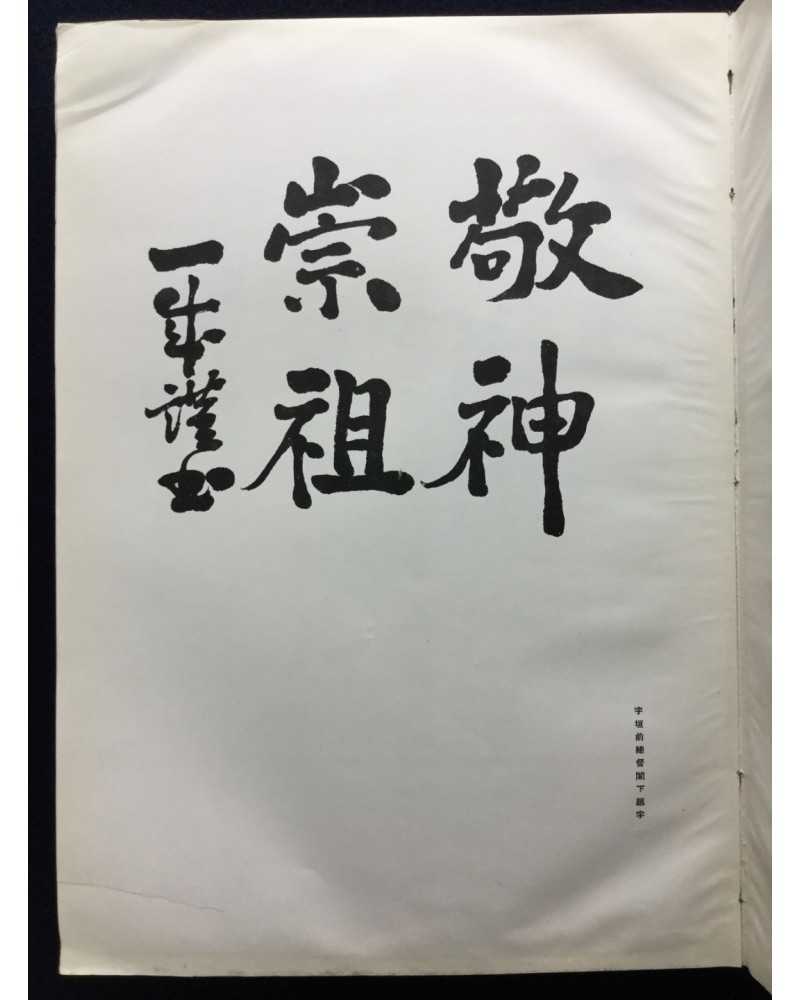 敬神
崇祖
一成謹書
宇垣前總督閣下題字